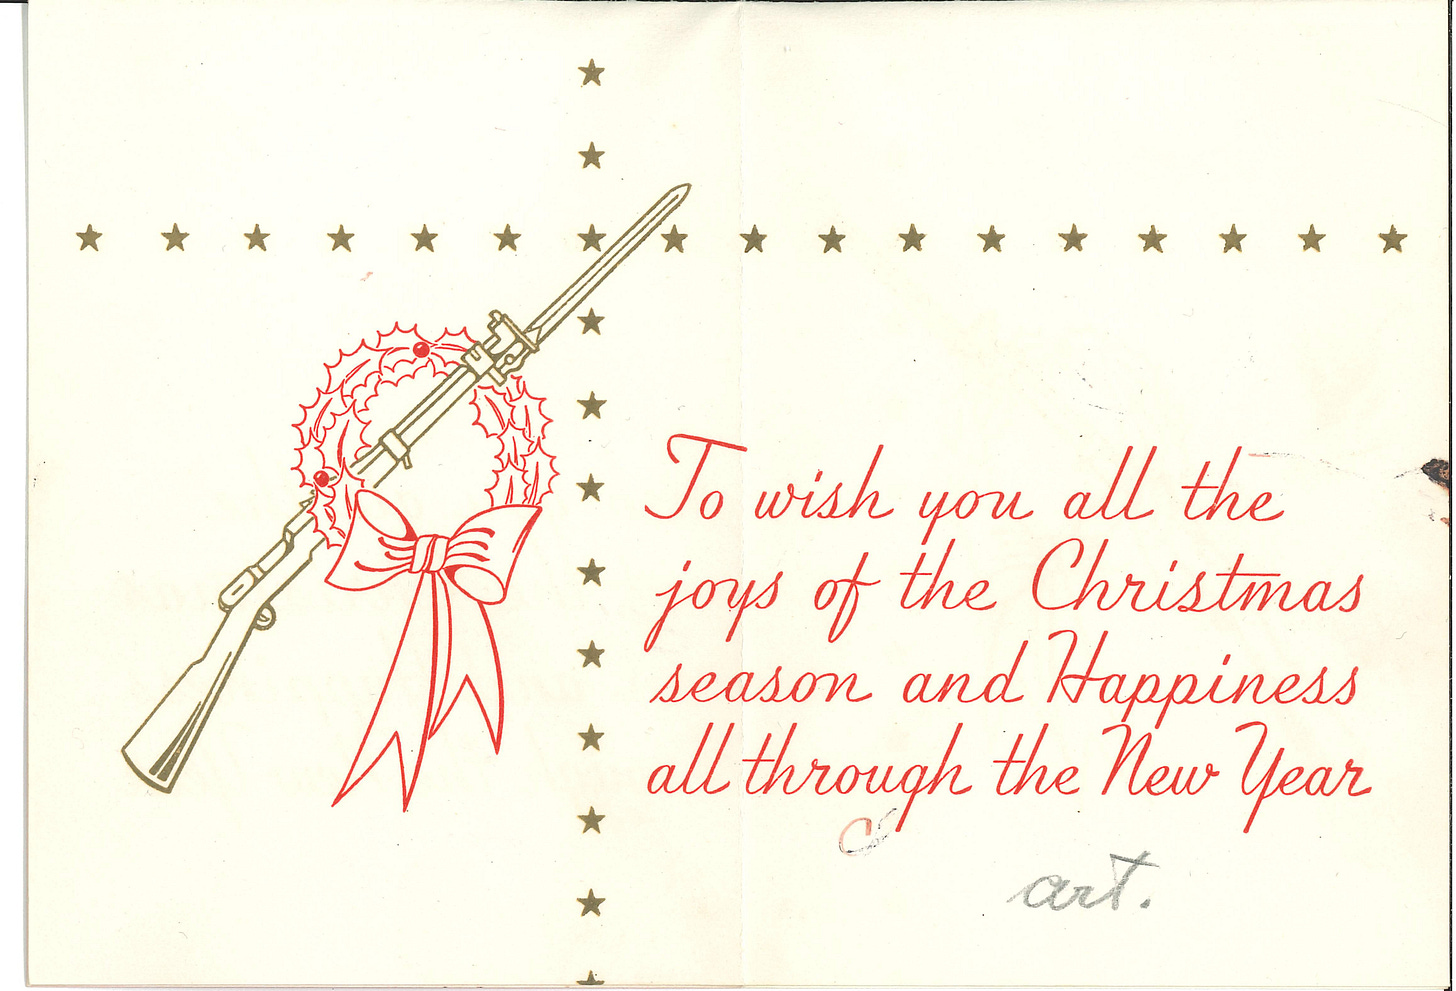 To wish you all the
joys of the Christmas
season and Happiness
all through the New Year
art.